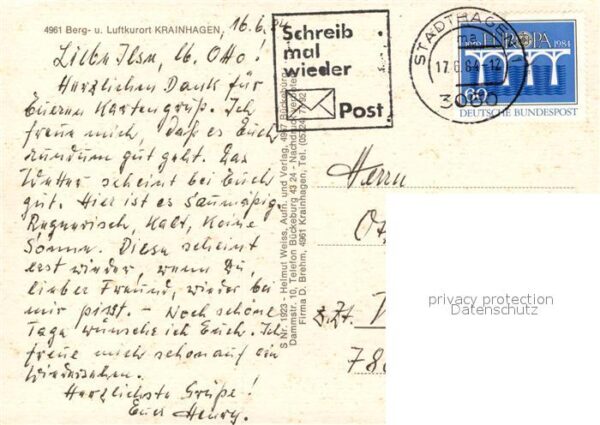 4961 Berg- u. Luftkurort KRAINHAGEN, 16.6.84
Liebe Ilse, lb. Otto!
Herzlichen Dank für
Eueren Kartengruß. Ich
freue mich, daß es Euch
rundum gut geht. Das
Wetter scheint bei Euch
gut. Hier ist es saumäßig.
Regnerisch, kalt, keine
Sonne. Diese scheint
erst wieder, wenn Du
lieber Freund, wieder bei
mir pißt. – Noch schöne
Tage wünsche ich Euch. Ich
freue mich schon auf ein
Wiedersehen.
Herzlichste Grüße!
Euer Henry.
S Nr. 1923 - Helmut Weiss, Aufn. und Verlag, 4967 Bückeburg
Dammstr. 10, Telefon Bückeburg 43 24 - Nachdruck verboten
Firma D. Brehm, 4961 Krainhagen, Tel. (05724)
Schreib
mal
wieder
Post
STADTHAGEN
ma
17.6.84-12
3060
EUROPA 1984
60
DEUTSCHE BUNDESPOST
Herrn
z.Zt.
78
privacy protection
Datenschutz